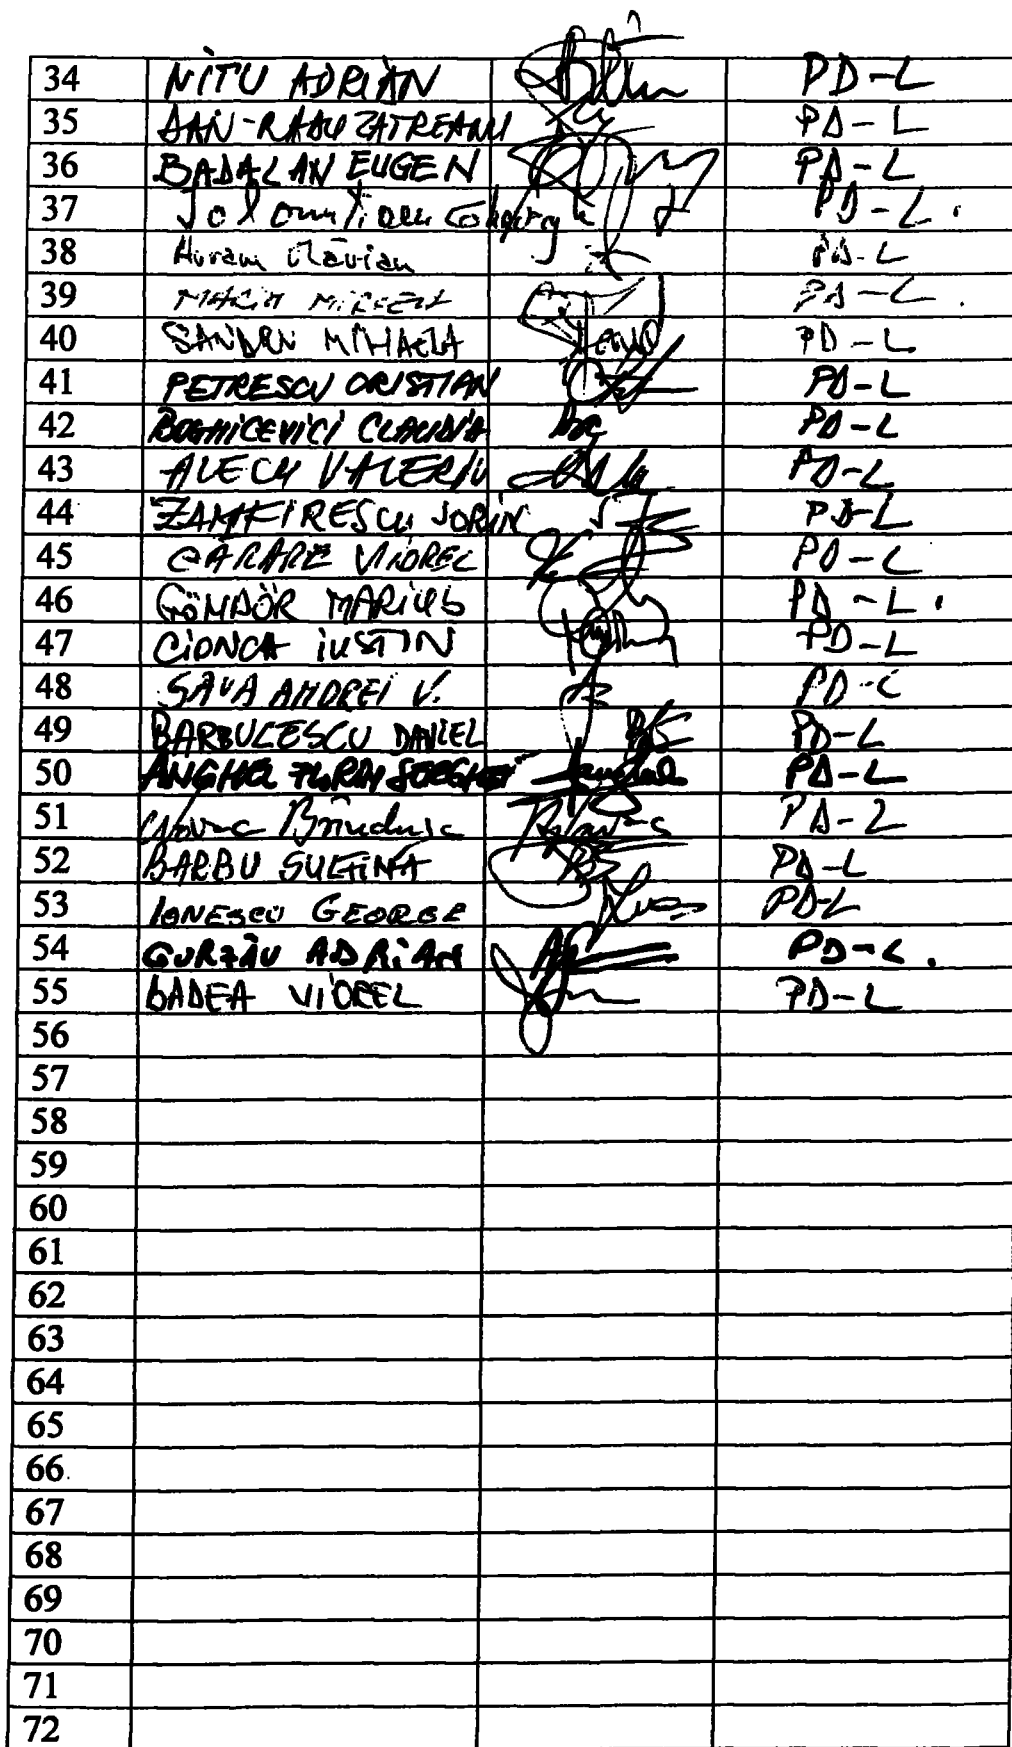 34 NITU ADRIAN PD-L
35 DAN-RADU ZATREANU PD-L
36 BADALAN EUGEN PD-L
37 PD-L.
38 Flavian PD-L
39 MIRCEA PD-L.
40 SANDRU MIHAELA PD-L
41 PETRESCU CRISTIAN PD-L
42 BOGHICEVICI CLAUDIA PD-L
43 ALECU VALERIU PD-L
44 ZAMFIRESCU SORIN PD-L
45 CĂRARE VIOREL PD-L
46 GÖNDÖR MARIUS PD-L.
47 CIONCA IUSTIN PD-L
48 SAVA ANDREI V. PD-L
49 BARBULESCU DANIEL PD-L
50 ANGHEL FLORIN SERGHEI PD-L
51 Novac Brîndușa PD-L
52 BARBU SULFINA PD-L
53 IONESCU GEORGE PD-L
54 GURZĂU ADRIAN PD-L.
55 BADEA VIOREL PD-L
56
57
58
59
60
61
62
63
64
65
66
67
68
69
70
71
72